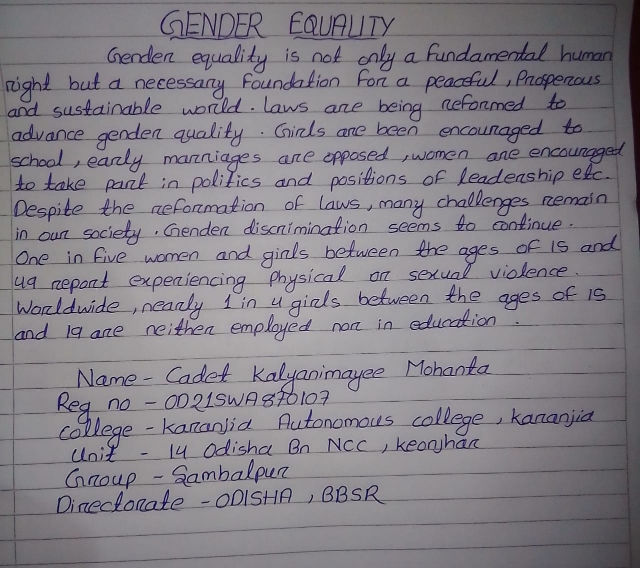 GENDER EQUALITY
Gender equality is not only a fundamental human
right but a necessary Foundation For a peaceful, Prosperous
and sustainable world. Laws are being reformed to
advance gender quality. Girls are been encouraged to
school, early marriages are opposed, women are encouraged
to take part in politics and positions of leadership etc.
Despite the reformation of laws, many challenges remain
in our society. Gender discrimination seems to continue.
One in five women and girls between the ages of 15 and
49 report experiencing Physical or sexual violence.
Worldwide, nearly 1 in 4 girls between the ages of 15
and 19 are neither employed nor in education.
Name - Cadet Kalyanimayee Mohanta
Reg no - OD21SWA870107
College - Karanjia Autonomous college, karanjia
Unit - 14 Odisha Bn NCC, keonjhar
Group - Sambalpur
Directorate - ODISHA, BBSR